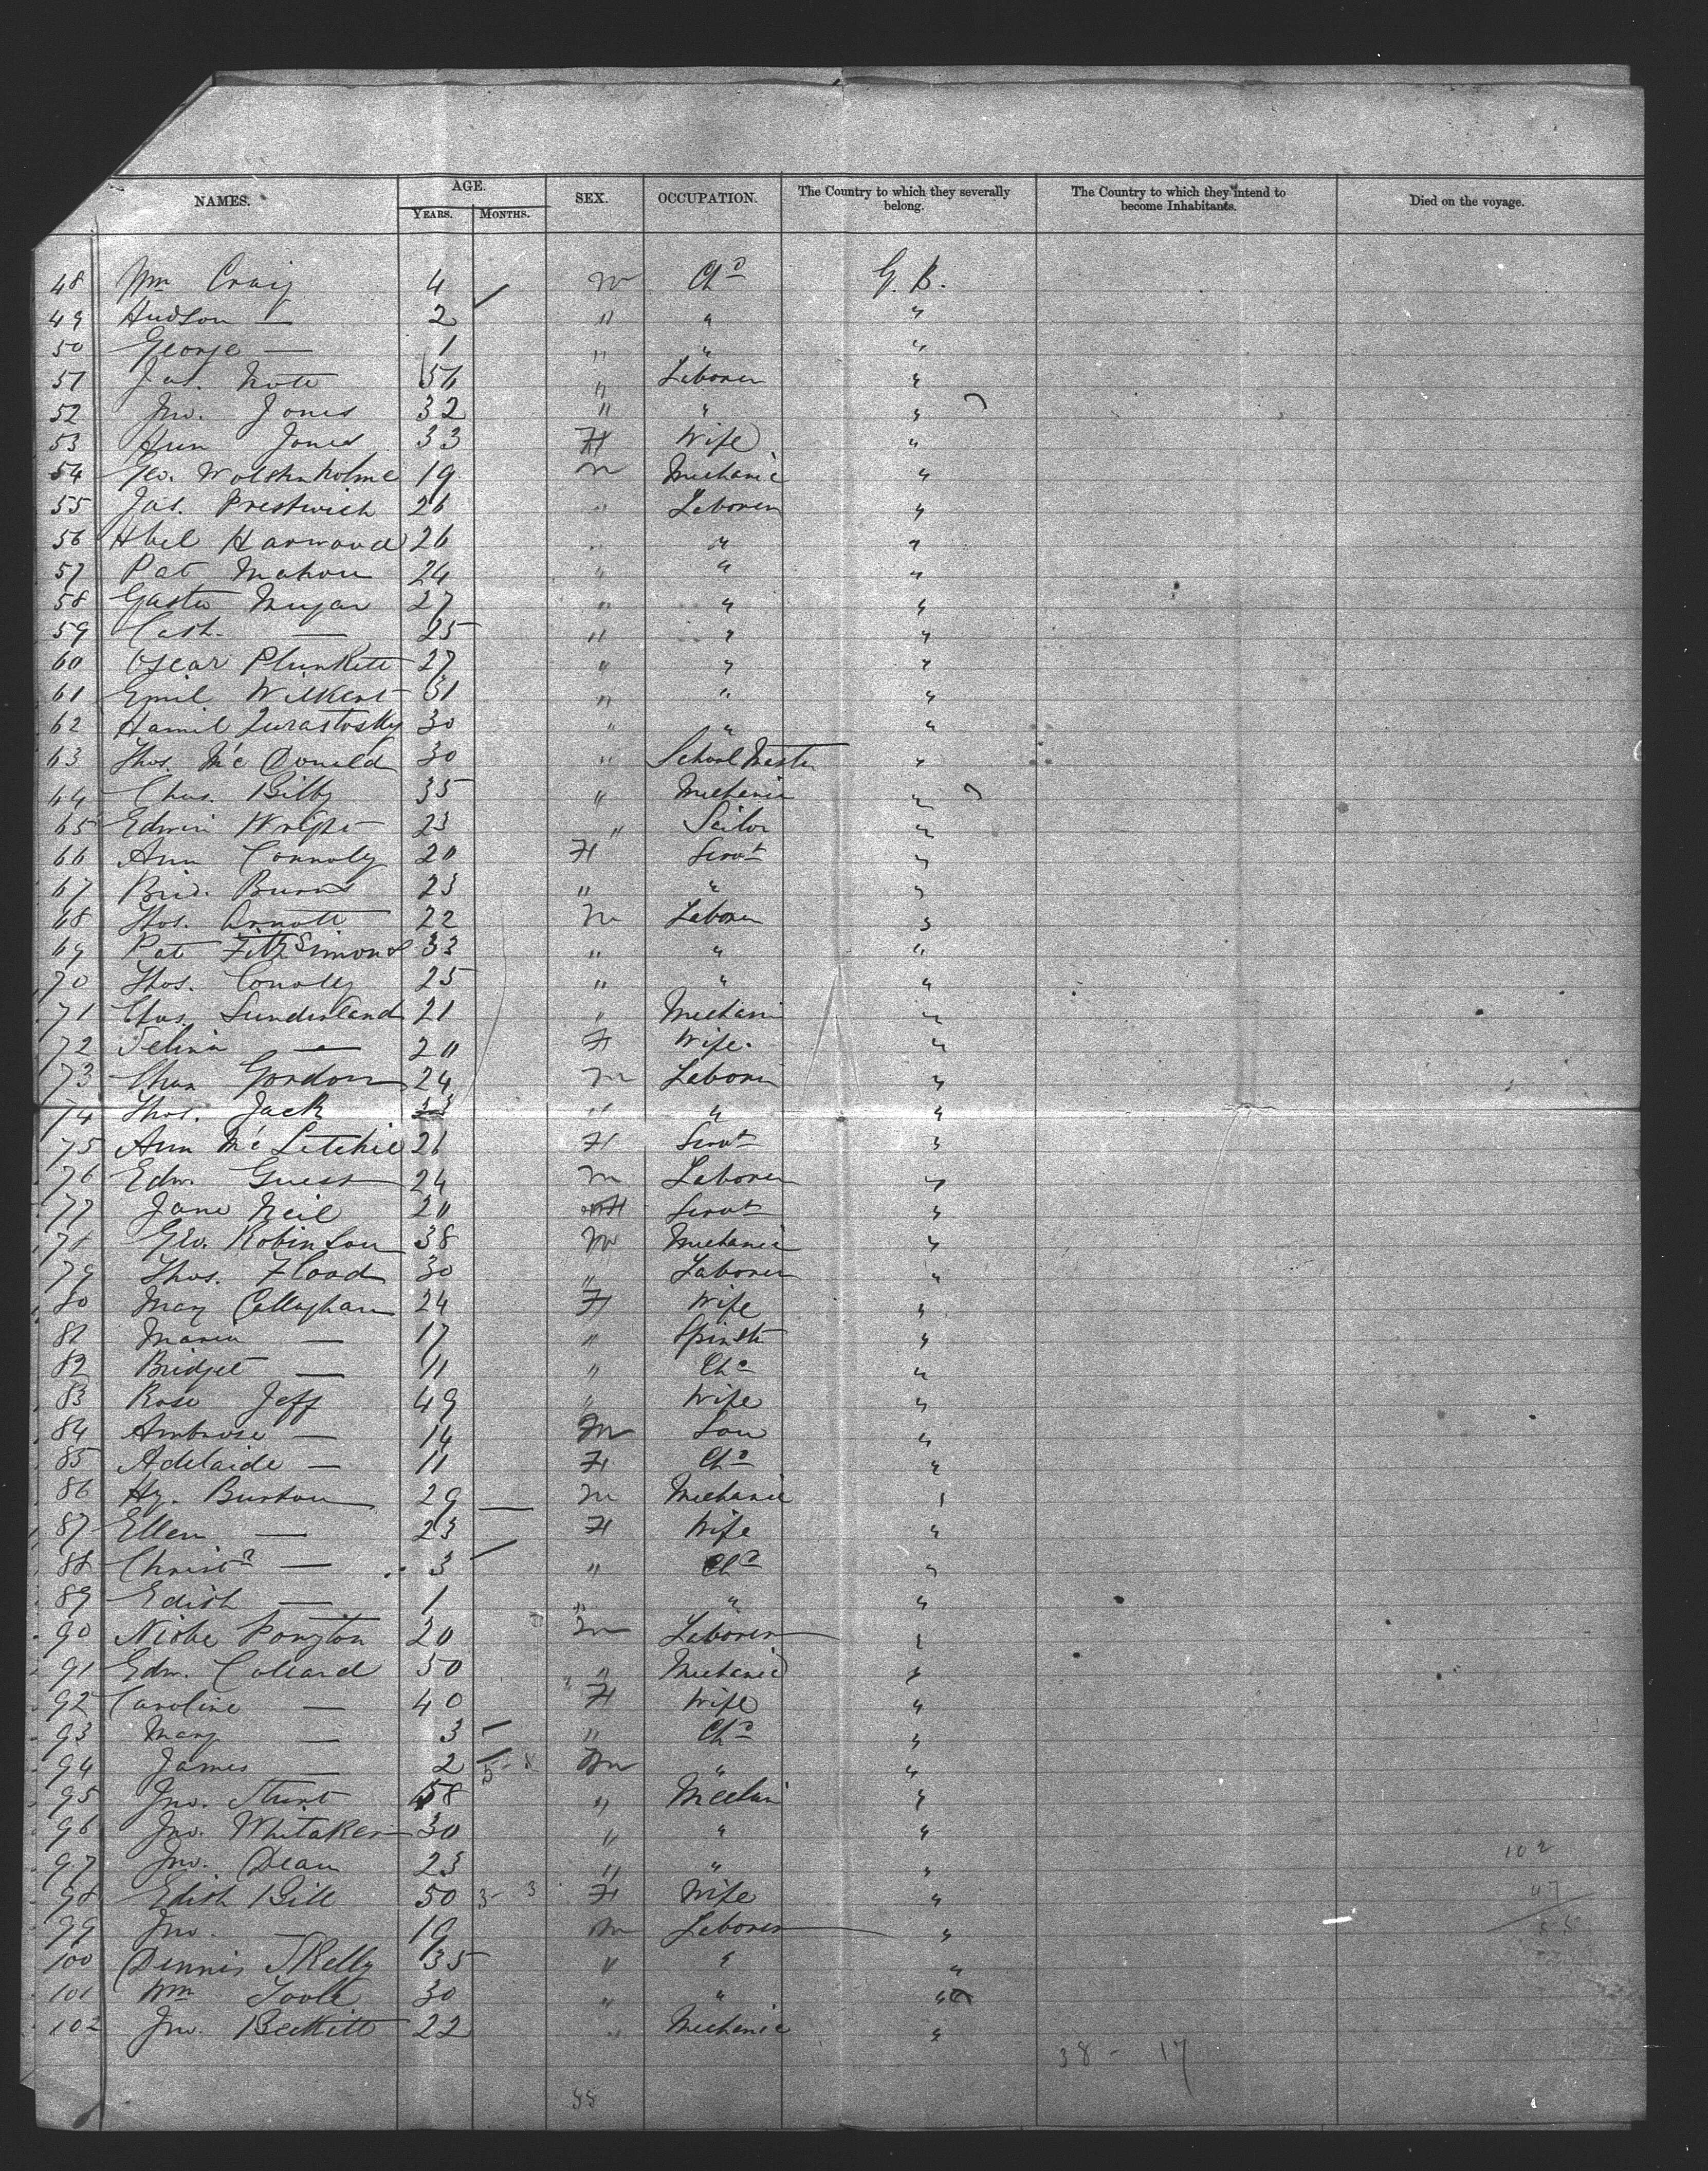 NAMES. AGE. SEX. OCCUPATION. The Country to which they severally belong. The Country to which they intend to become Inhabitants. Died on the voyage.
YEARS. MONTHS.
48 Wm Craig 4 m Chd G. B.
49 Hudson — 2 " " "
50 George — 1 " " "
51 Jas. 56 " Laborer "
52 Jno. Jones 32 " " "
53 Ann Jones 33 F Wife "
54 Geo. Wolstenholme 19 m Mechanic "
55 Jas. Prestwich 26 " Laborer "
56 Abel Harwood 26 " " "
57 Pat Mahon 24 " " "
58 27 " " "
59 — 25 " " "
60 Oscar Plunkett 27 " " "
61 Emil Wilkens 31 " " "
62 30 " " "
63 Thos. McDonald 30 " School Master "
64 Chas. Bilby 35 " Mechanic "
65 Edwin Wright 23 " Sailor "
66 Ann Connoly 20 F Servt "
67 Brid. Burns 23 " " "
68 Thos. Arnott 22 m Laborer "
69 Pat FitzSimons 33 " " "
70 Thos. Conolly 25 " " "
71 Chas. Sunderland 21 " Mechanic "
72 Selina — 20 F Wife "
73 Chas Gordon 24 m Laborer "
74 Thos. Jack 33 " " "
75 Ann McLetchie 26 F Servt "
76 Edw. Guess 24 m Laborer "
77 Jane Neil 20 F Servt "
78 Geo. Robinson 38 m Mechanic "
79 Thos. Flood 30 " Laborer "
80 Mary Callaghan 24 F Wife "
81 Maria — 17 " Spinstr "
82 Bridget — 11 " Chd "
83 Rose Jeff 49 " Wife "
84 Ambrose — 14 m Son "
85 Adelaide — 11 F Chd "
86 Hy. Burton 29 — m Mechanic "
87 Ellen — 23 F Wife "
88 Christa — 3 " Chd "
89 Edith — 1 " " "
90 20 m Laborer "
91 Edw. Collard 50 " Mechanic "
92 Caroline — 40 F Wife "
93 Mary — 3 " Chd "
94 James — 2 m " "
95 Jno. Sturt 58 " Mechanic "
96 Jno. Whitaker 30 " " "
97 Jno. Dean 23 " " " 102
98 Edith Bill 50 3- 3 F Wife " 47
99 Jno. — 19 m Laborer " 55
100 Dennis Skelly 35 " " "
101 Wm Toole 30 " " "
102 Jno. Beckitt 22 " Mechanic "
38 - 17
55